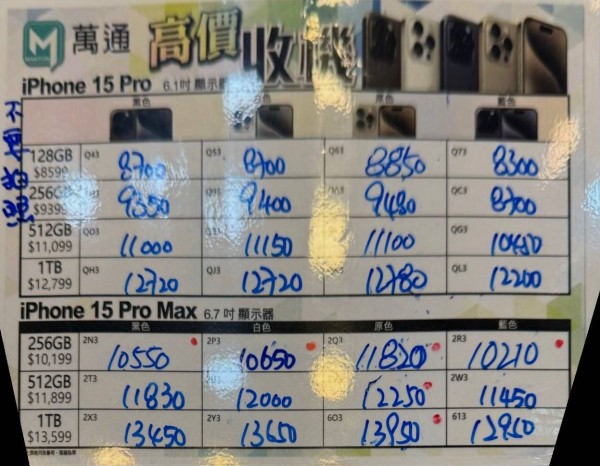 M 萬通 高價收機
MANTON
iPhone 15 Pro 6.1吋 顯示
不要拍照
黑色 原色 藍色
128GB $8599 Q43 8700 Q53 8700 Q63 8850 Q73 8300
256G $9399 9350 9400 9480 QC3 8700
512GB $11,099 QD3 11000 11150 11100 QG3 10480
1TB $12,799 QH3 12720 QJ3 12720 12780 QL3 12200
iPhone 15 Pro Max 6.7 吋 顯示器
黑色 白色 原色 藍色
256GB $10,199 2N3 10550 2P3 10650 2Q3 11820 2R3 10210
512GB $11,899 2T3 11830 12000 12250 2W3 11450
1TB $13,599 2X3 13450 2Y3 13650 603 13950 613 12960